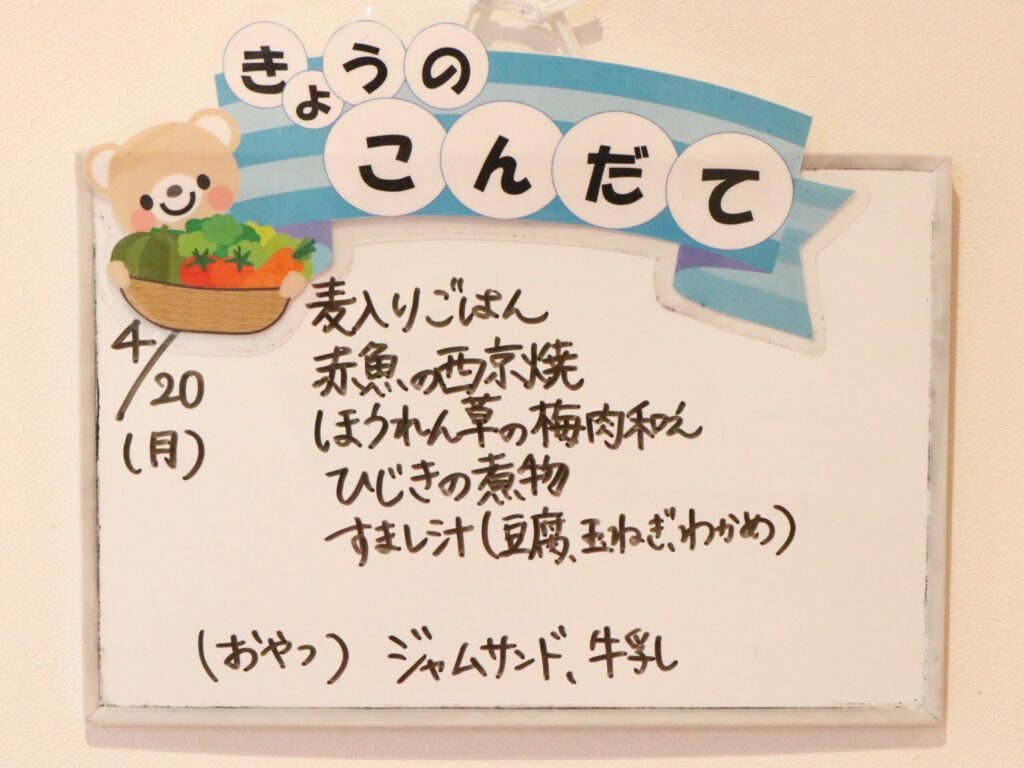 きょうの
こんだて
4/20
(月)
麦入りごはん
赤魚の西京焼
ほうれん草の梅肉和え
ひじきの煮物
すまし汁(豆腐、玉ねぎ、わかめ)
(おやつ) ジャムサンド、牛乳